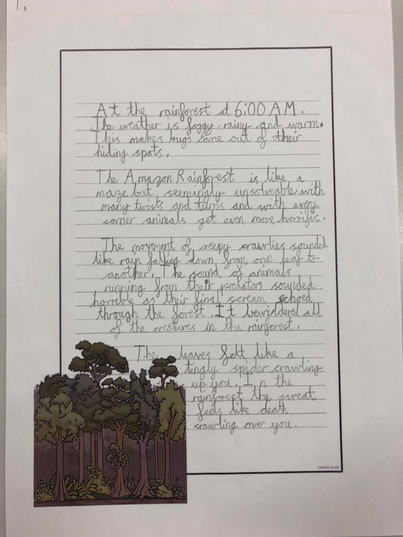 At the rainforest at 6:00 AM.
The weather is foggy, rainy and warm.
This makes bugs come out of their
hiding spots.
The Amazon Rainforest is like a
maze but, seemingly unsolveable with
many twists and turns and with every
corner animals get even more horrific.
The movement of creepy crawlies sounded
like rain falling down from one leaf to
another. The sound of animals
running from their predators sounded
horrible as their final scream echoed
through the forest. It bewildered all
of the creatures in the rainforest.
The leaves felt like a
tingly spider crawling
up you. In the
rainforest the sweat
feels like death
crawling over you.